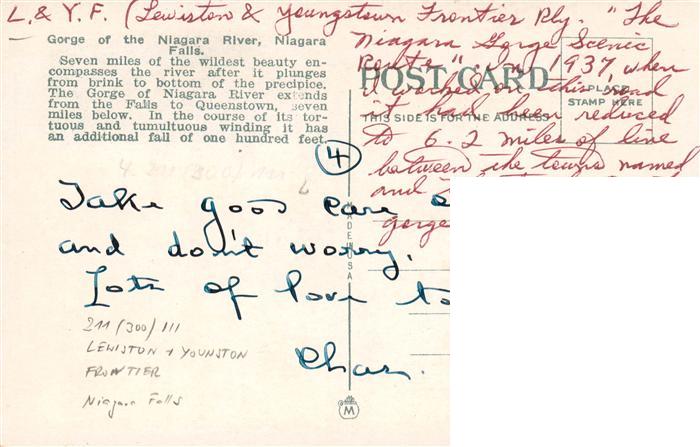 L. & Y. F. (Lewiston & Youngstown Frontier Rly. "The
Niagara Gorge Scenic
Route". In 1937, when
I worked on this road
it had been reduced
to 6.2 miles of line
between the towns named
and
gorge
Gorge of the Niagara River, Niagara
Falls.
Seven miles of the wildest beauty en-
compasses the river after it plunges
from brink to bottom of the precipice.
The Gorge of Niagara River extends
from the Falls to Queenstown, seven
miles below. In the course of its tor-
tuous and tumultuous winding it has
an additional fall of one hundred feet.
POST CARD
THIS SIDE IS FOR THE ADDRESS
PLACE
STAMP HERE
4
4. 211 (300) 111
Take good care
and don't worry.
Lots of love to
Chas.
MADE IN USA
211 (300) 111
LEWISTON + YOUNSTON
FRONTIER
Niagara Falls
M